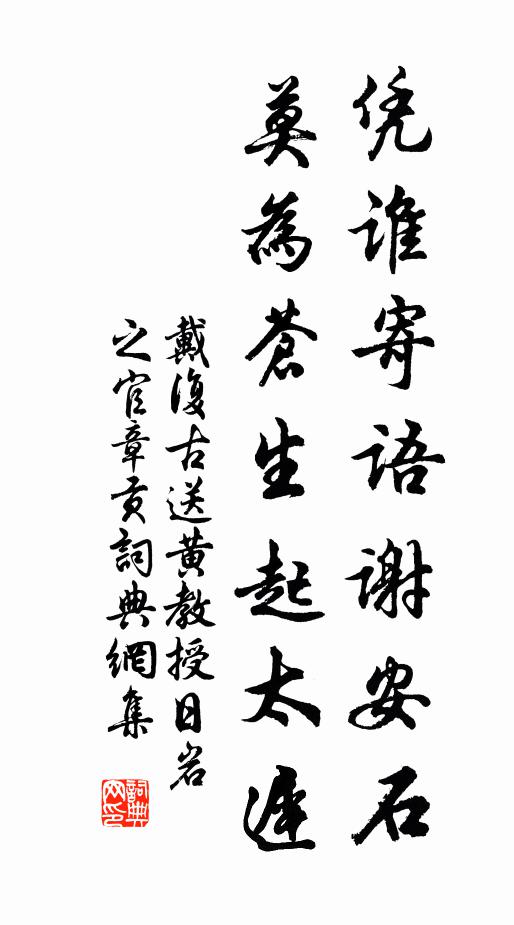 凭谁寄语谢安石
莫為蒼生起太遲
戴復古送黄教授日岩
之官章贡詞典網集
詞典
网印